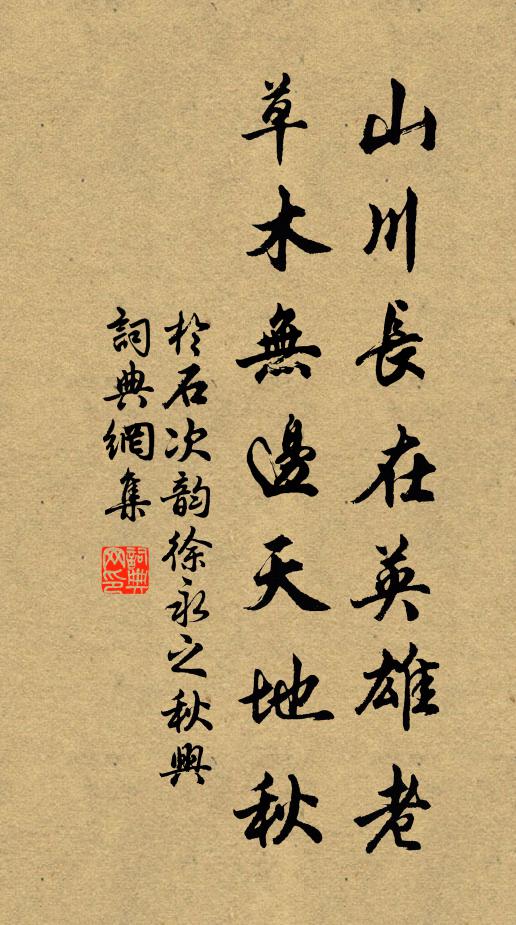 山川長在英雄老
草木無邊天地秋
於石次韵徐永之秋興
詞典網集
詞典网印